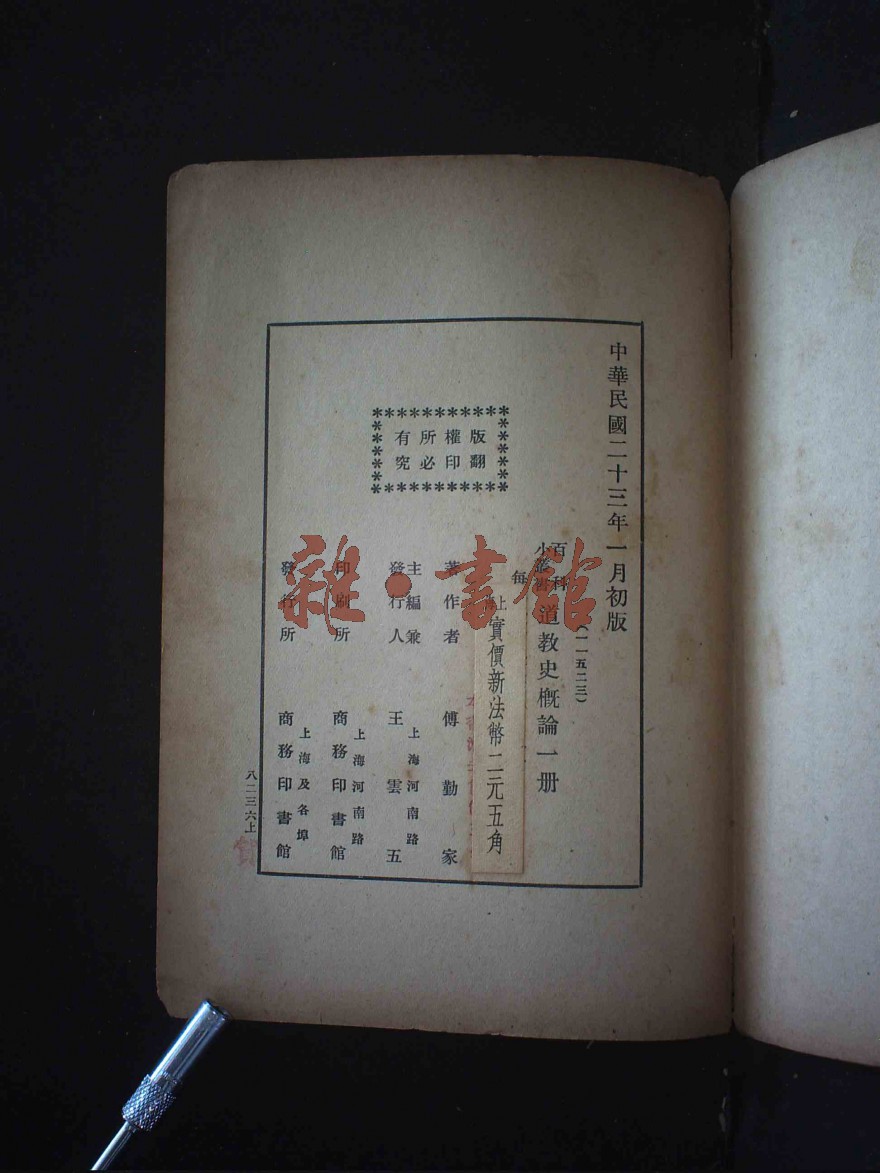 中華民國二十三年一月初版
(一一五二三)
百科
小叢書
道教史概論一册
每
上
實價新法幣二元五角
版權所有
翻印必究
著作者 傅勤家
主編兼
發行人
上海河南路
王雲五
印刷所
上海河南路
商務印書館
發行所
上海及各埠
商務印書館
八二三六上
雜·書館